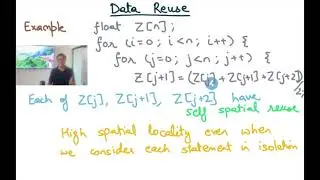 Data Reuse
Example float Z[n];
for (i=0; i<n; i++) {
for (j=0; j<n; j++) {
Z[j+1] = (Z[j] + Z[j+1] + Z[j+2])
Each of Z[j], Z[j+1], Z[j+2] have
self spatial reuse
High spatial locality even when
we consider each statement in isolation